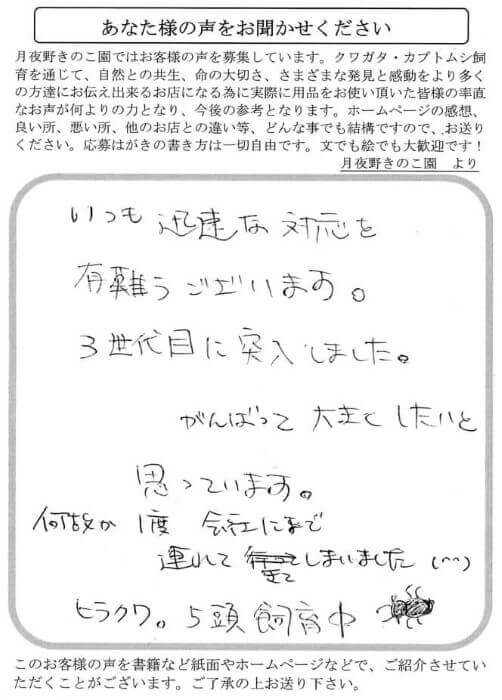 あなた様の声をお聞かせください
月夜野きのこ園ではお客様の声を募集しています。クワガタ・カブトムシ飼
育を通じて、自然との共生、命の大切さ、さまざまな発見と感動をより多く
の方達にお伝え出来るお店になる為に実際に用品をお使い頂いた皆様の率直
なお声が何よりの力となり、今後の参考となります。ホームページの感想、
良い所、悪い所、他のお店との違い等、どんな事でも結構ですので、お送り
ください。応募はがきの書き方は一切自由です。文でも絵でも大歓迎です！
月夜野きのこ園　より
いつも 迅速な 対応を
有難うございます。
3世代目に突入しました。
がんばって 大きくしたいと
思っています。
何故か 1度 会社にまで
連れて しまいました (^^)
きて
ヒラクワ。5頭 飼育中
このお客様の声を書籍など紙面やホームページなどで、ご紹介させてい
ただくことがございます。ご了承の上お送り下さい。